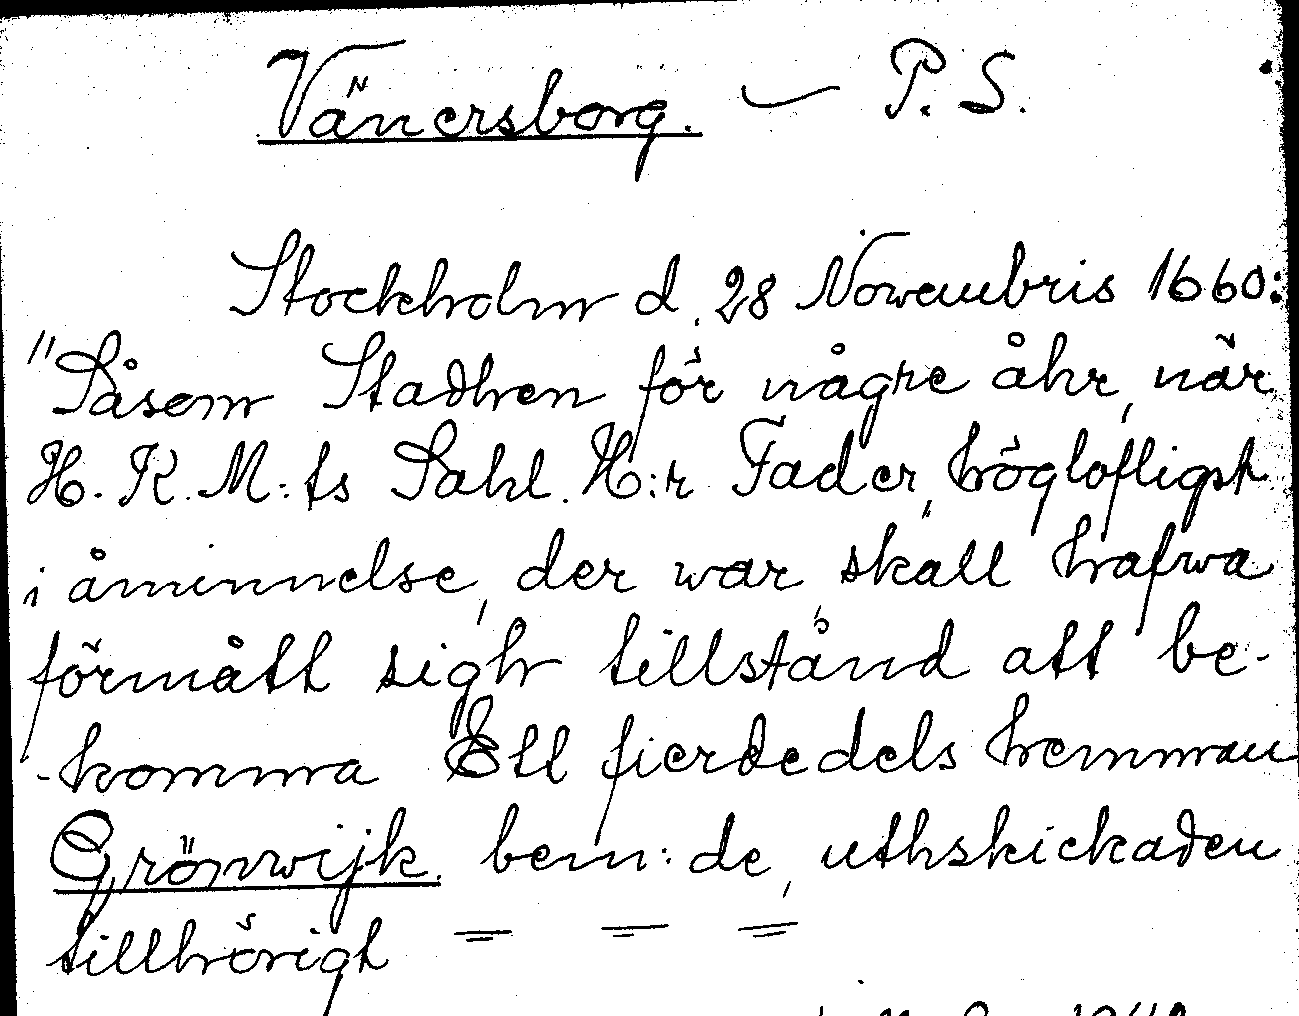 Vänersborg. — P. S.
Stockholm d. 28 Novembris 1660:
"Såsom Stadhen för någre åhr, när
H. K. M:ts Sahl. H:r Fader, högloflligst
i åminnelse, der war, skall hafwa
förmått sigh tillstånd att be-
-komma Ett fierdedels hemman
Grönwijk. bem:de, uthskickaden
tillhörigt = = =